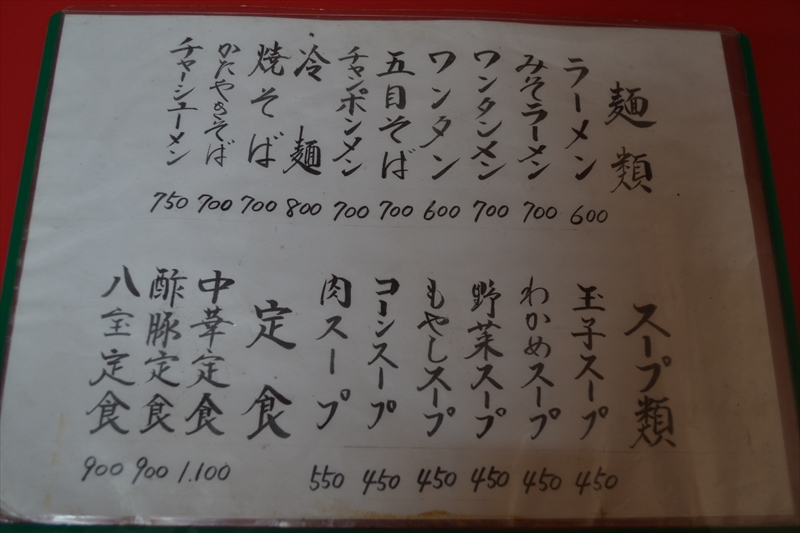 麺類
ラーメン 600
みそラーメン 700
ワンタンメン 700
ワンタン 600
五目そば 700
チャンポンメン 700
冷麺 800
焼そば 700
かたやきそば 700
チャーシューメン 750
スープ類
玉子スープ 450
わかめスープ 450
野菜スープ 450
もやしスープ 450
コーンスープ 450
肉スープ 550
定食
中華定食 1.100
酢豚定食 900
八宝定食 900